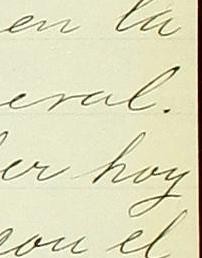 en la
eral.
er hoy
con el